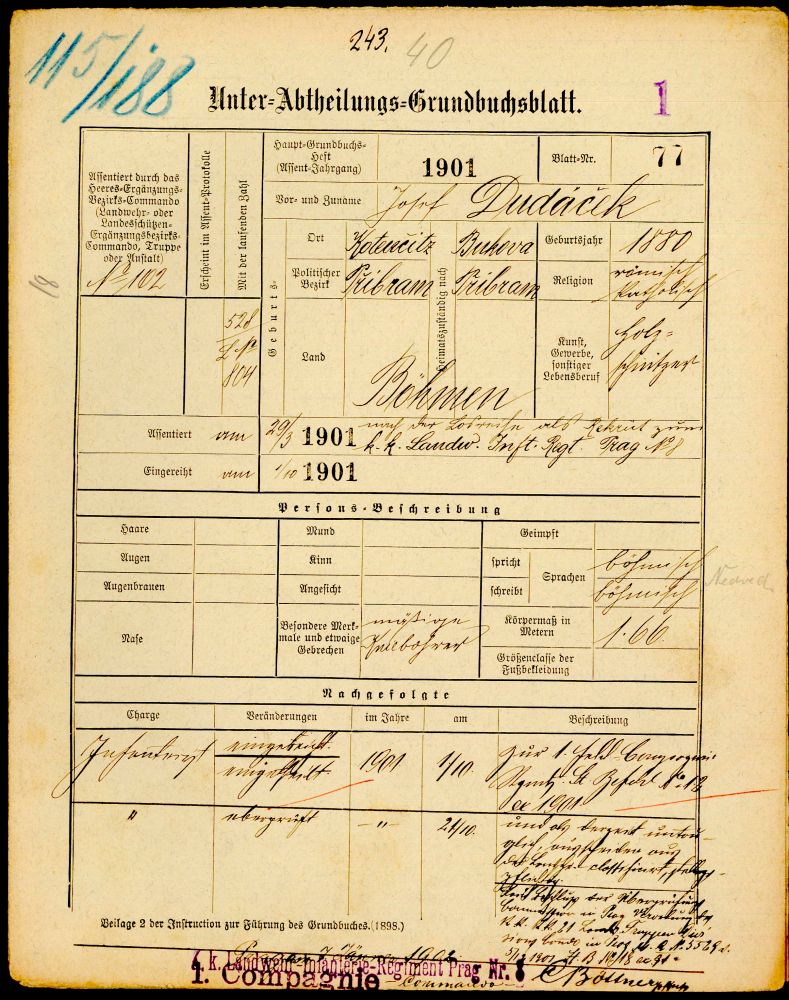 243.
40
115/188
1
Unter-Abtheilungs-Grundbuchsblatt.
Assentiert durch das
Heeres-Ergänzungs-
Bezirks-Commando
(Landwehr- oder
Landesschützen-
Ergänzungsbezirks-
Commando, Truppe
oder Anstalt)
Nº 102
Erscheint im Assent-Protokolle
Mit der laufenden Zahl
528
L Nº
804
18
Haupt-Grundbuchs-
Heft
(Assent-Jahrgang)
1901
Blatt-Nr.
77
Vor- und Zuname
Josef Dudáček
Geburts-
Ort
Kotenčitz
Heimatszuständig nach
Bukova
Geburtsjahr
1880
Politischer
Bezirk
Přibram
Přibram
Religion
römisch
katholisch
Land
Böhmen
Kunst,
Gewerbe,
sonstiger
Lebensberuf
Holz-
schnitzer
Assentiert am 29/3 1901 nach der Losreihe als Rekrut zum
k. k. Landw. Inft. Regt. Prag Nº 8
Eingereiht am 1/10 1901
Persons-Beschreibung
Haare
Mund
Geimpft
Augen
Kinn
spricht
Sprachen
böhmisch
Augenbrauen
Angesicht
schreibt
böhmisch
Nase
Besondere Merk-
male und etwaige
Gebrechen
mäßige
Körpermaß in
Metern
1.66
Größenclasse der
Fußbekleidung
Nachgefolgte
Charge
Veränderungen
im Jahre
am
Beschreibung
Infanterist
eingereiht.
eingetheilt
1901
1/10.
zur 1. Feld-Compagnie
Befehl Nº
ex 1901
"
überprüft
-"-
24/10.
und als derzeit untau-
glich,
aus
der Landwehr classificirt,
der Überprüfungs
Commission in Prag
1901
Beilage 2 der Instruction zur Führung des Grundbuches. (1898.)
1902
k. k. Landwehr-Infanterie-Regiment Prag Nr. 8
1. Compagnie
Commando
Böttner